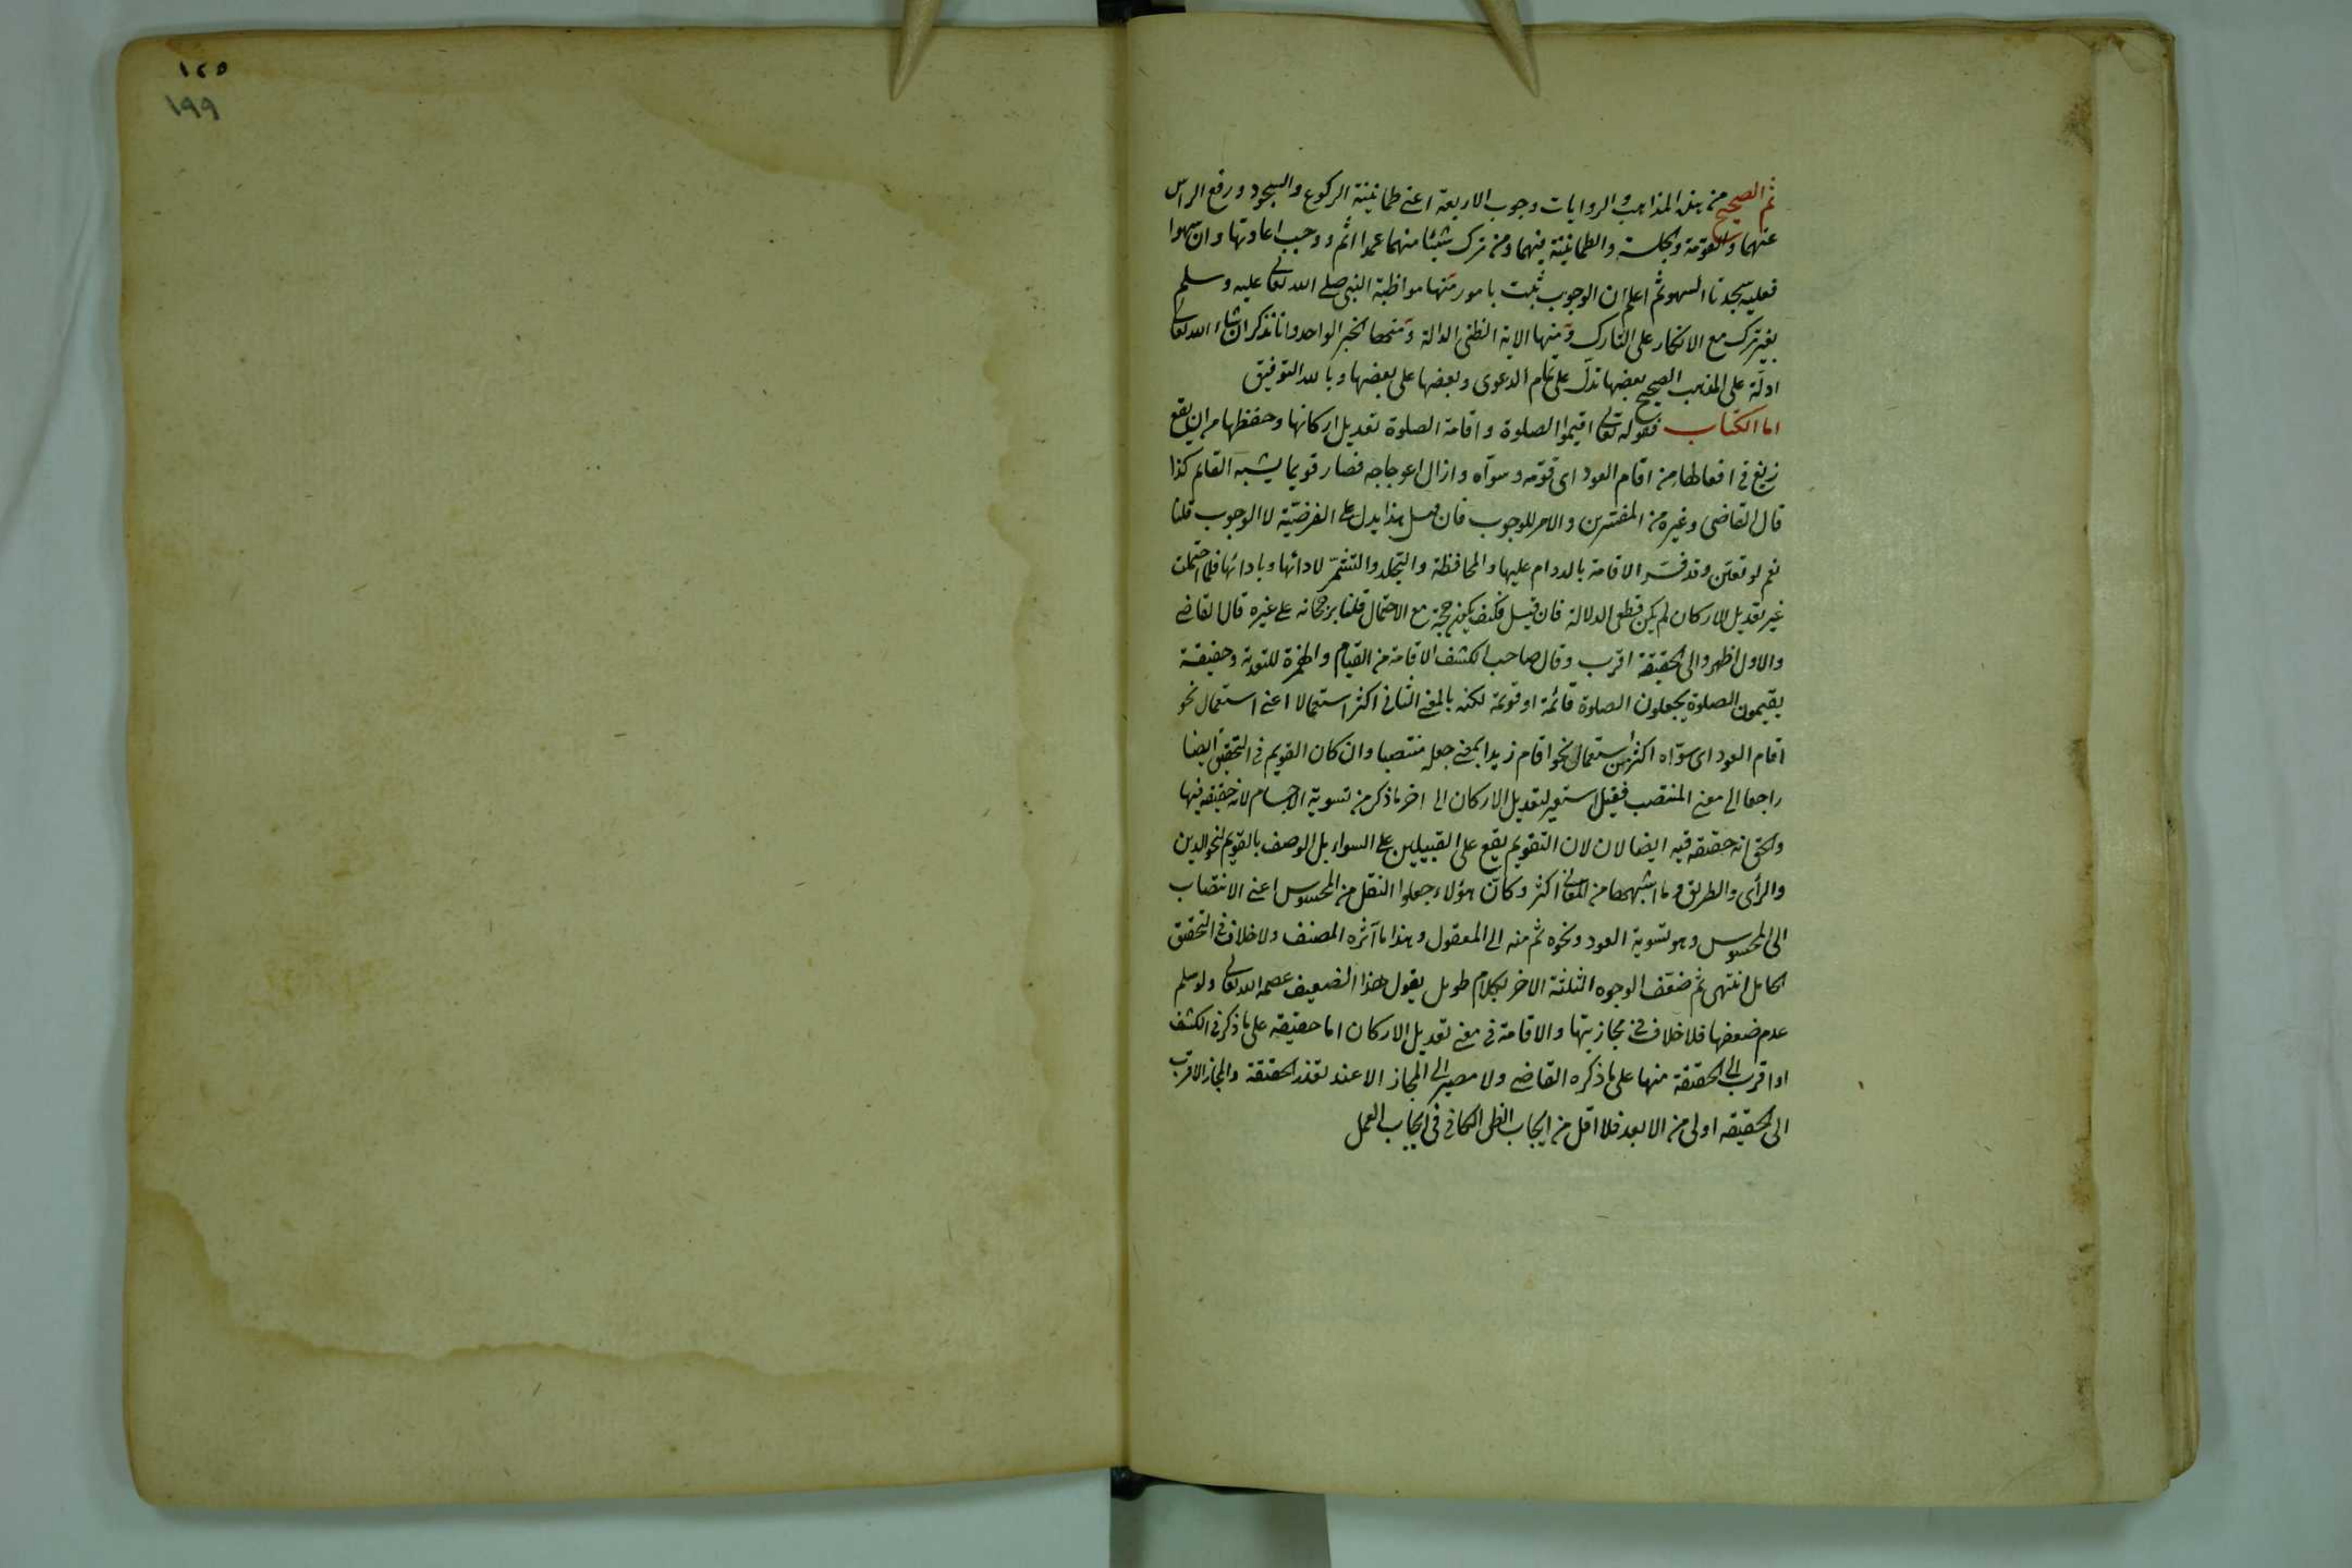 ١٢٥
١٩٩
ثم الصحيح من هذه المذاهب والروايات وجوب الاربعة اعنى طمانينة الركوع والسجود ورفع الراس
عنهما والقومة والجلسة والطمانينة فيهما ومن ترك شيئا منهما عمدا اثم ووجب اعادتها وان سهوا
فعليه سجدتا السهو ثم اعلم ان الوجوب ثبت بامور منها مواظبة النبى صلى الله تعالى عليه وسلم
بغير ترك مع الانكار على التارك ومنها الاية الظنى الدالة ومنها الخبر الواحد وانا نذكر ان شاء الله تعالى
ادلة على المذهب الصحيح بعضها تدل على تمام الدعوى وبعضها على بعضها وبالله التوفيق
اما الكتاب فقوله تعالى اقيموا الصلوة واقامة الصلوة تعديل اركانها وحفظها من ان يقع
زيغ فى افعالها من اقام العود اى قومه وسواه وازال اعوجاجه فصار قويما يشبه القائم كذا
قال القاضى وغيره من المفسرين والامر للوجوب فان قيل هذا يدل على الفرضية لا الوجوب قلنا
نعم لو تعين وقد فسر الاقامة بالدوام عليها والمحافظة والتجلد والتشمر لادائها وبادائها فلما احتملت
غير تعديل الاركان لم يكن قطعى الدلالة فان قيل فكيف يكون حجة مع الاحتمال قلنا برجحانه على غيره قال القاضى
والاول اظهر والى الحقيقة اقرب وقال صاحب الكشف الاقامة من القيام والهمزة للتعدية وحقيقة
يقيمون الصلوة يجعلون الصلوة قائمة او قويمة لكنه بالمعنى الثانى اكثر استعمالا اعنى استعمال نحو
اقام العود اى سواه اكثر من استعمال نحو اقام زيدا بمعنى جعله منتصبا وان كان القويم فى التحقيق ايضا
راجعا الى معنى المنتصب فقيل استعير لتعديل الاركان الى اخر ما ذكر من تسوية الاجسام لانه حقيقة فيها
والحق انه حقيقة فيه ايضا لان لان التقويم يقع على القبيلين على السواء بل الوصف بالقويم لنحو الدين
والرأى والطريق وما اشبهها من المعانى اكثر وكان هؤلاء جعلوا النقل من المحسوس اعنى الانتصاب
الى المحسوس وهو تسوية العود ونحوه ثم منه الى المعقول وهذا ما آثره المصنف ولا خلاف فى التحقيق
الحاصل انتهى ثم ضعف الوجوه الثلثة الاخر بكلام طويل يقول هذا الضعيف عصمه الله تعالى ولو سلم
عدم ضعفها فلا خلاف فى مجازيتها والاقامة فى معنى تعديل الاركان اما حقيقة على ما ذكر فى الكشف
او اقرب الى الحقيقة منها على ما ذكره القاضى ولا مصير الى المجاز الا عند تعذر الحقيقة والمجاز الاقرب
الى الحقيقة اولى من الابعد فلا اقل من ايجاب الظن الكافى فى ايجاب العمل